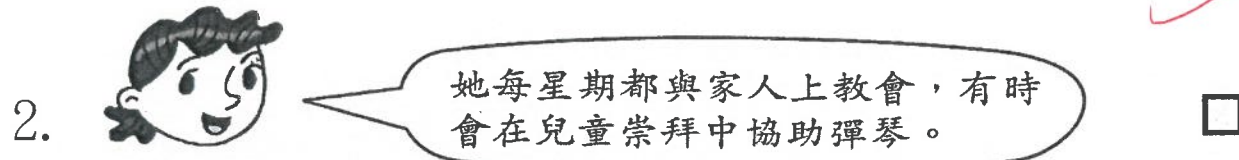 2.
她每星期都與家人上教會，有時
會在兒童崇拜中協助彈琴。